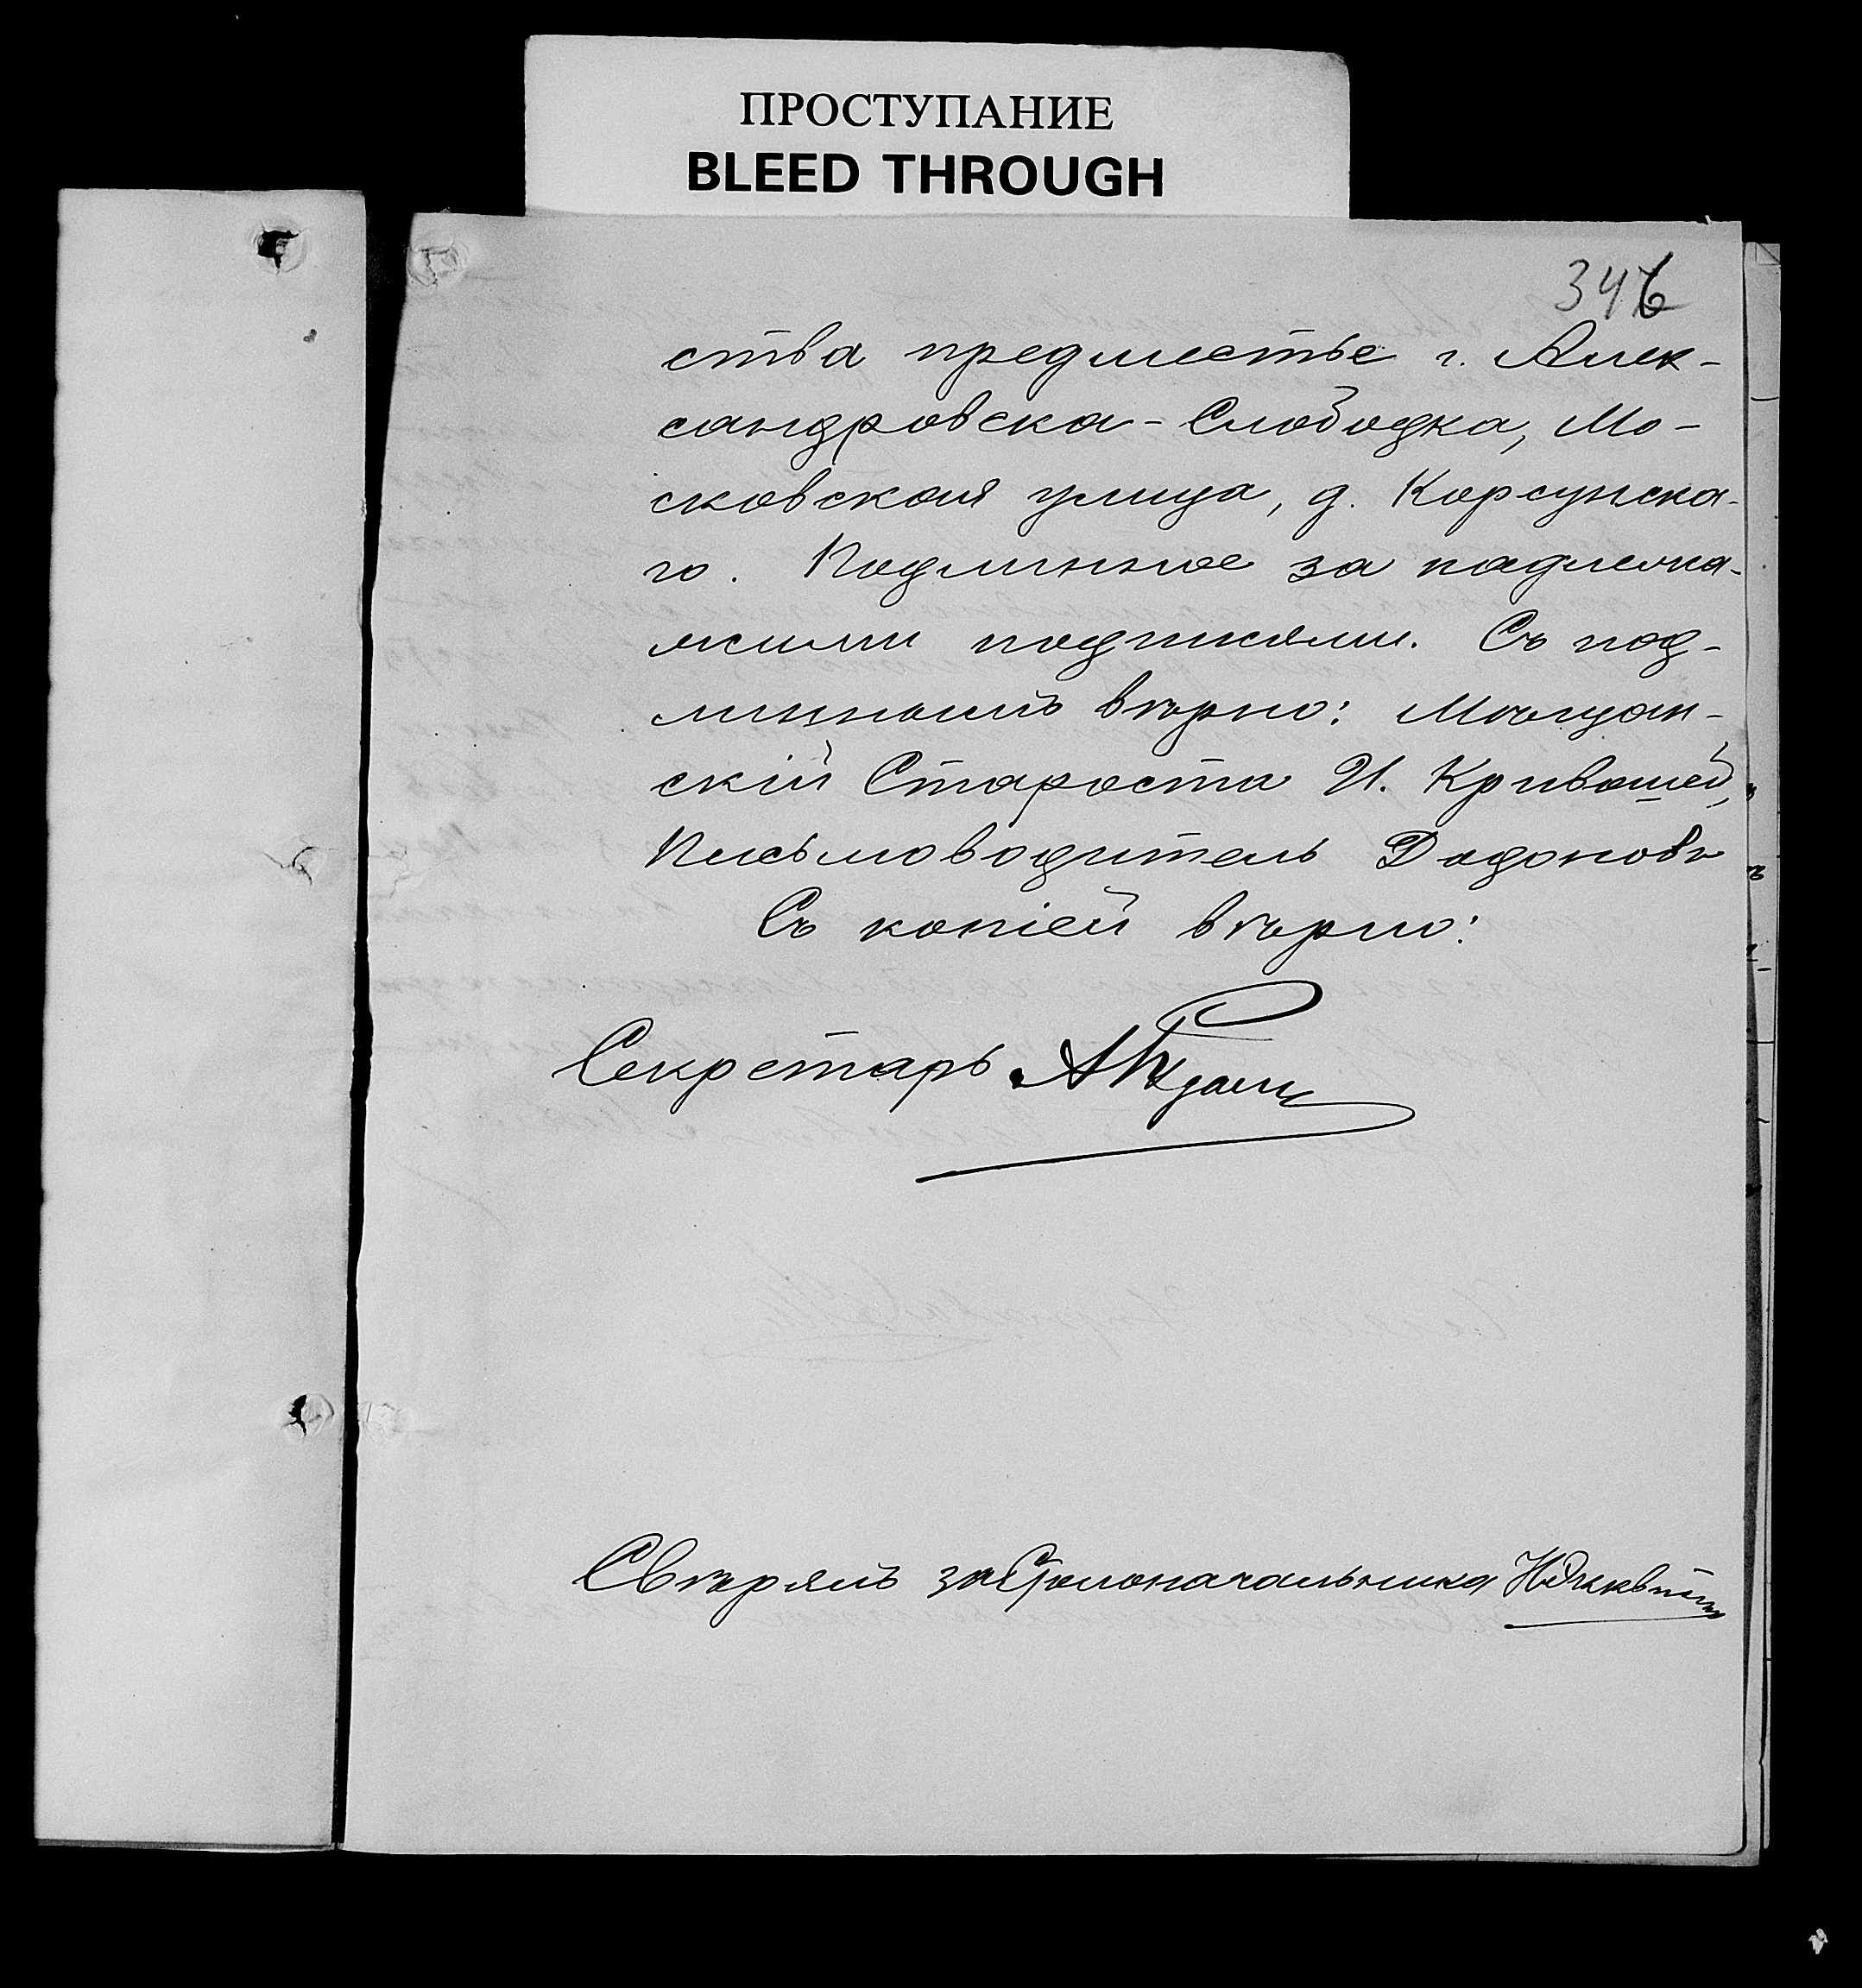 ПРОСТУПАНИЕ
BLEED THROUGH
346
ства предместье г. Алек-
сандровска-Слободка, Мо-
сковская улица, д. Корсунска-
го. Подлинное за надлежа-
жими подписями. Съ под-
линнымъ вѣрно: Мѣщан-
скій Староста И. Кривошей,
Письмоводитель Додоновъ
Съ копіей вѣрно:
Секретарь
Свѣрялъ за Столоначальника